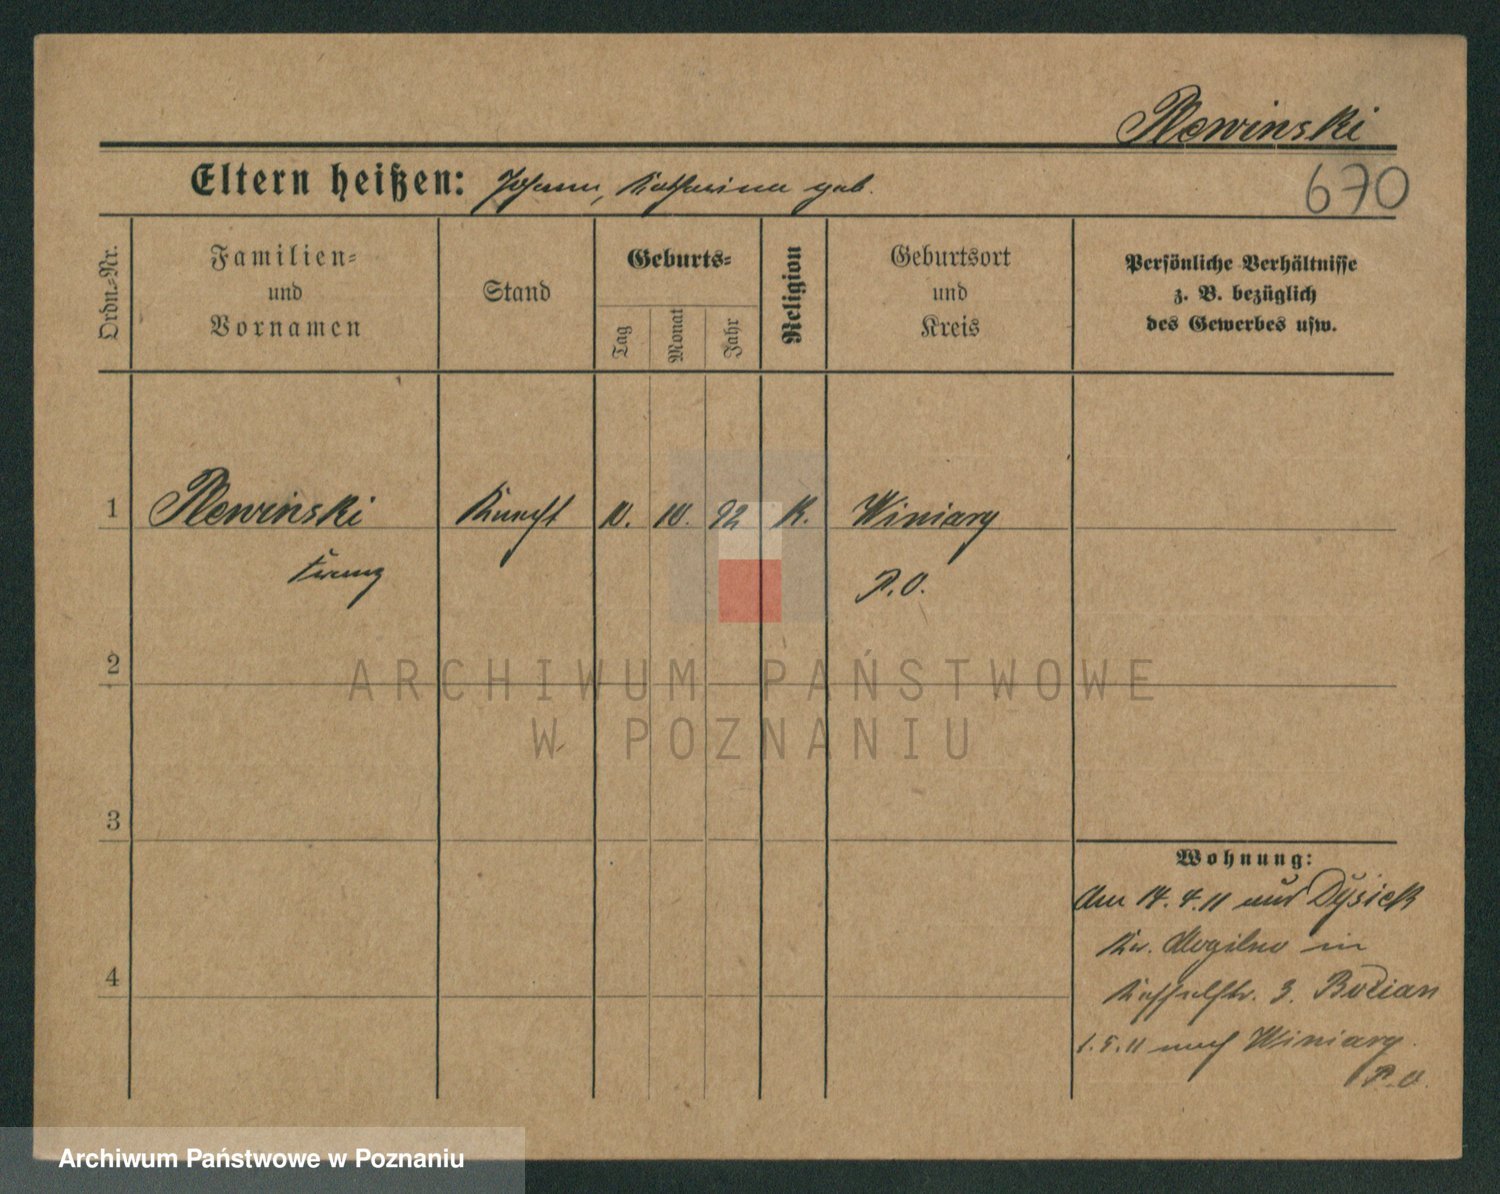 Plewinski
670
Eltern heißen: Johann, Katharina geb.
Ordn.-Nr.
Familien-
und
Vornamen
Stand
Geburts-
Tag
Monat
Jahr
Religion
Geburtsort
und
Kreis
Persönliche Verhältnisse
z. B. bezüglich
des Gewerbes usw.
1 Plewinski Knecht 10. 10. 92 K. Winiary
Franz P.O.
2
3
4
Wohnung:
Am 14.4.11 aus
Kr. Mogilno in
3. Bocian
1.5.11 nach Winiary
P.O.
ARCHIWUM PAŃSTWOWE
W POZNANIU
Archiwum Państwowe w Poznaniu